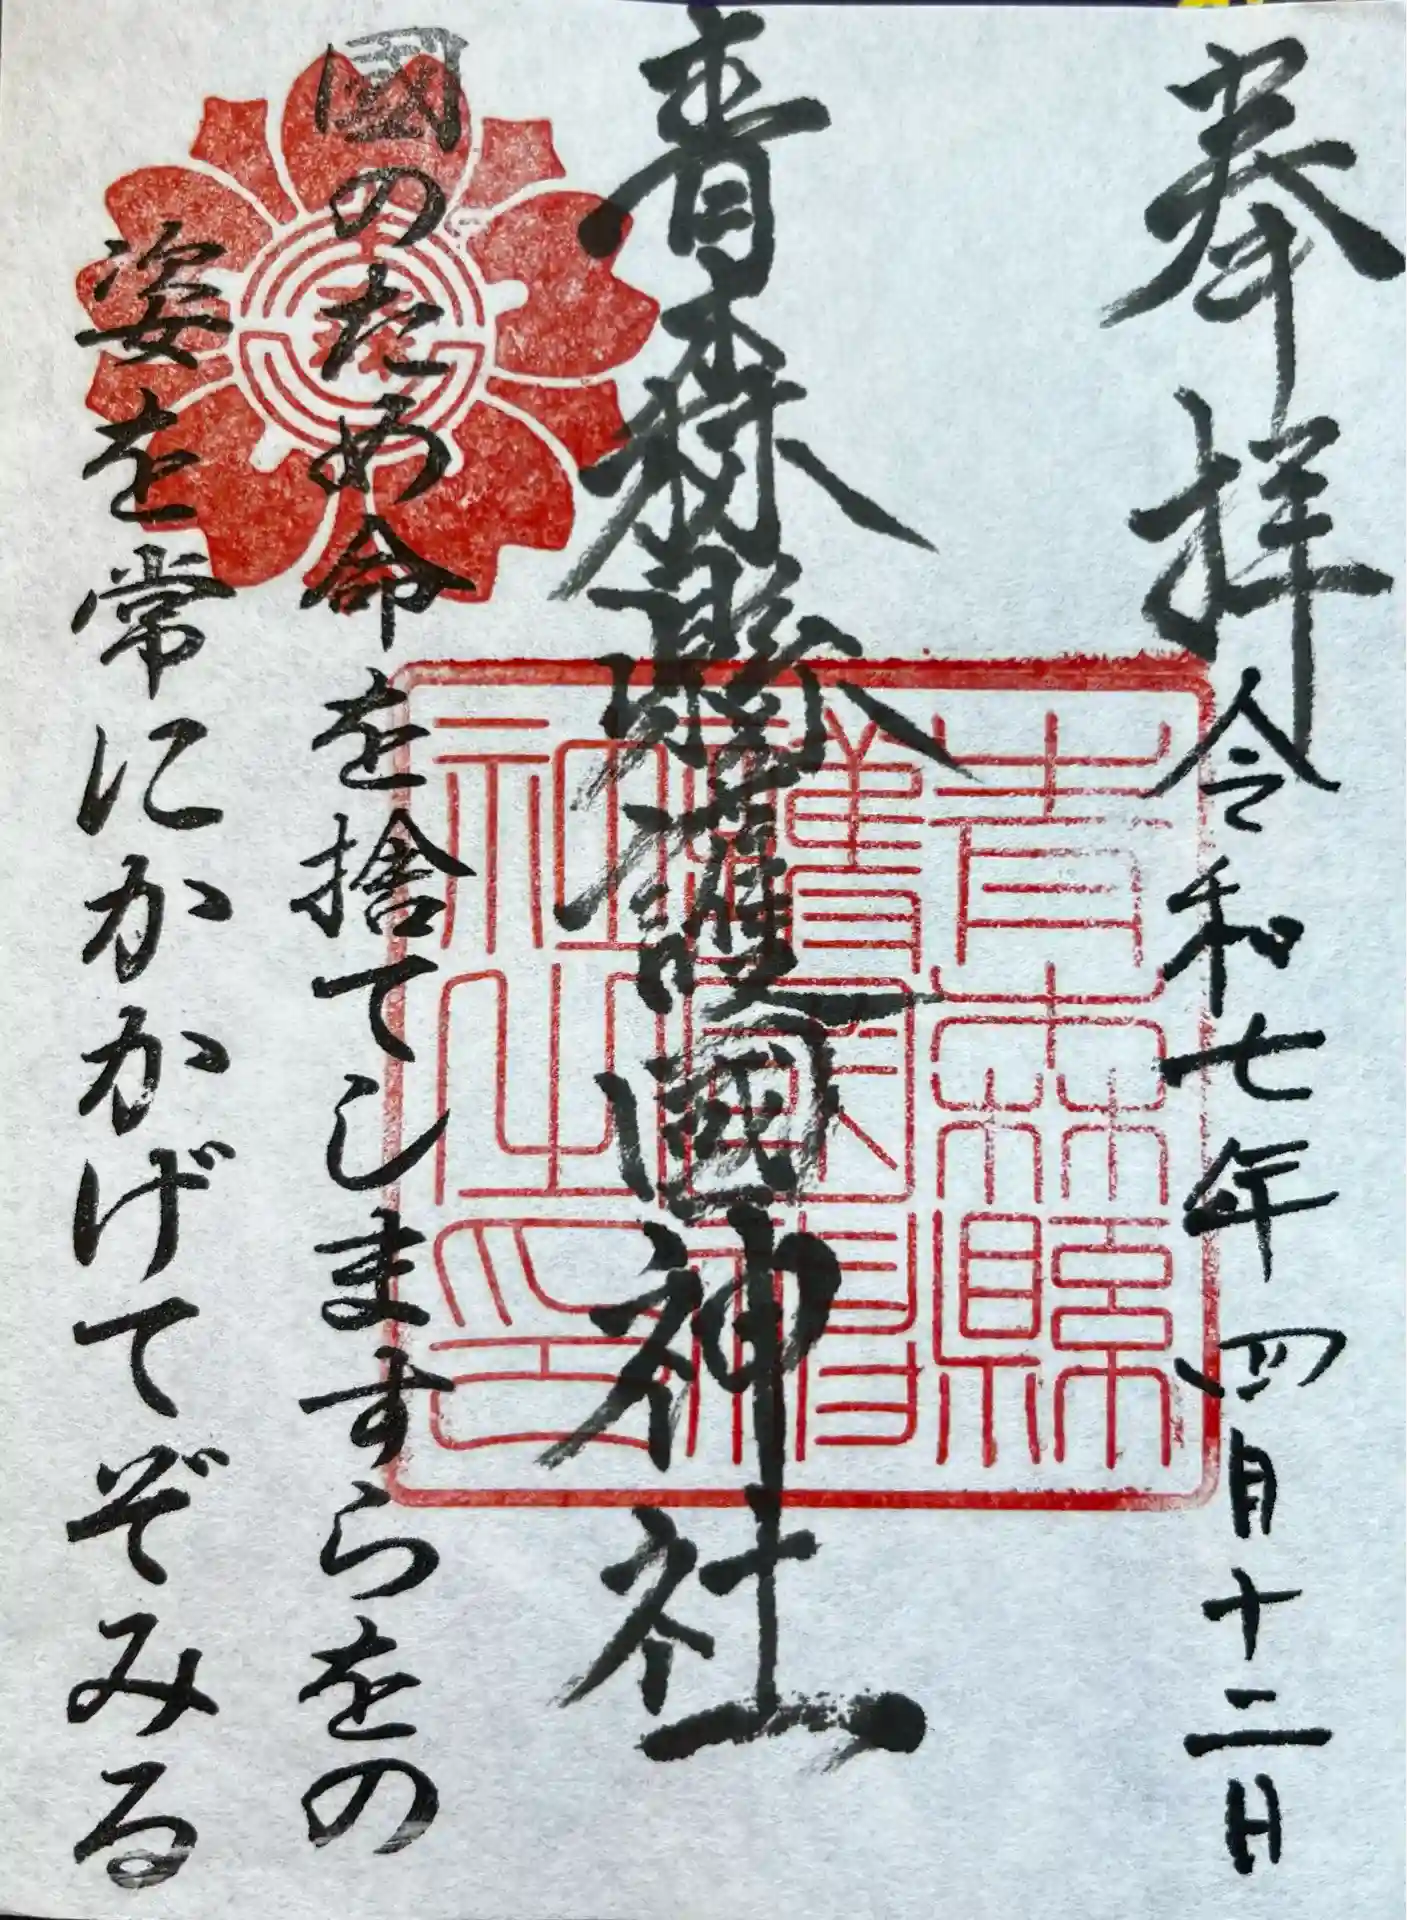 奉拝
令和七年四月十二日
青森縣護國神社
國のため命を捨てしますらをの
姿を常にかかげてぞみる
青森縣
護國神社